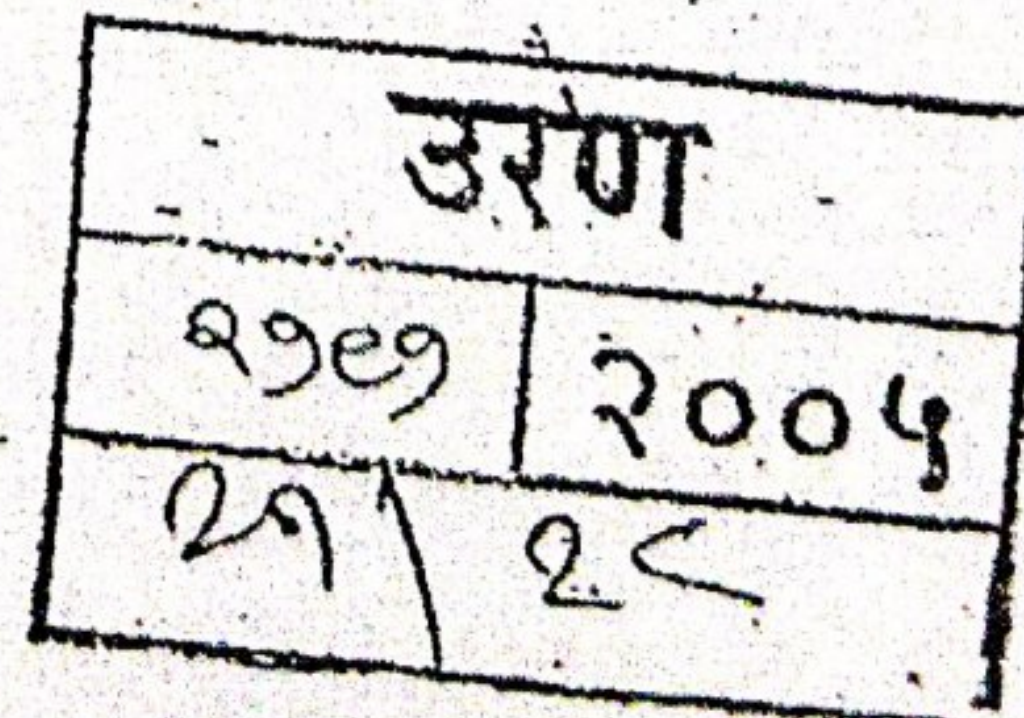 उरण
२७९७ २००५
२१ २८